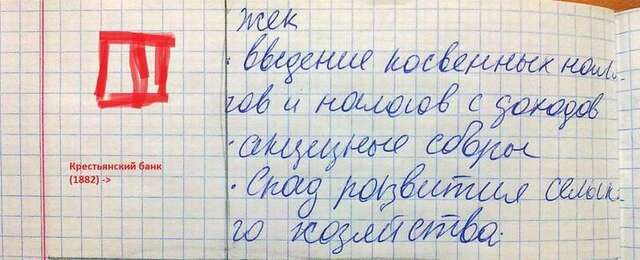 жек
· введение косвенных нало-
гов и налогов с доходов
· акцизные сборы
· Спад развития сельск-
го хозяйства.
Крестьянский банк
(1882) ->